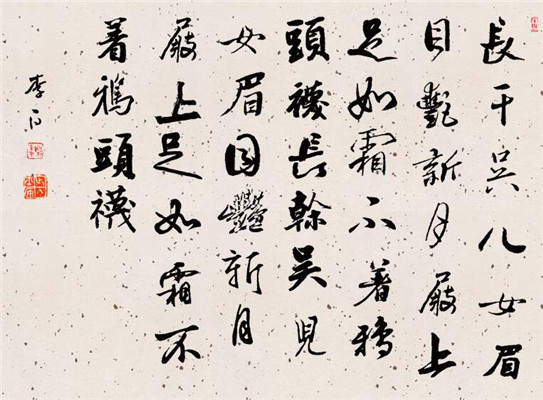 長干吴儿女眉
目艷新月屐上
足如霜不著鴉
頭襪長幹吴兒
女眉目豔新月
屐上足如霜不
著鴉頭襪
李白